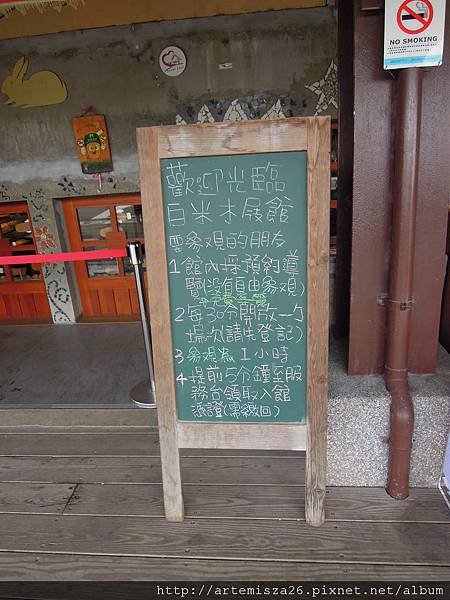 NO SMOKING
歡迎光臨
白米木展館
要參觀的朋友
1 館內採預約導
覽(沒有自由參觀)
2 每30分開放一
場次(請先登記)
3 參觀為 1小時
4 提前5分鐘至服
務台領取入館
憑證(需繳回)
http://artemisza26.pixnet.net/album